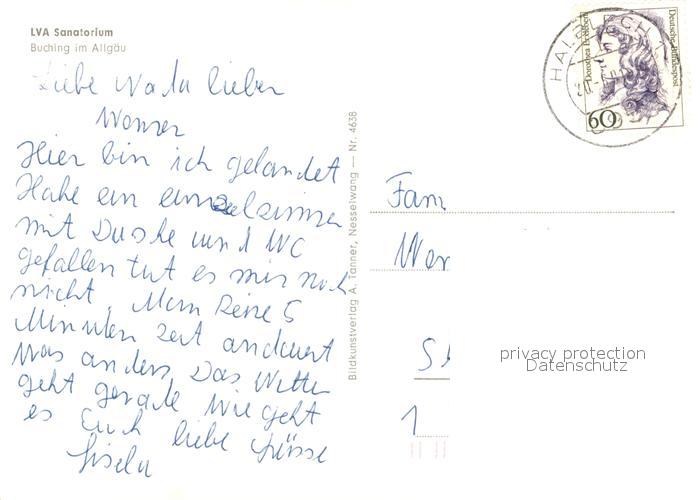 LVA Sanatorium
Buching im Allgäu
Liebe Wata lieber
Werner
Hier bin ich gelandet
Habe ein einzelzimmer
mit Dusche und WC
gefallen tut es mir noch
nicht Mann Keine 5
Minuten Zeit andauernt
Was anders Das Wetter
geht gerade Wie geht
es Euch liebe Grüsse
Gisela
Bildkunstverlag A. Tanner, Nesselwang — Nr. 4638
Deutsche Bundespost
60
Fam
Wer
1
privacy protection
Datenschutz